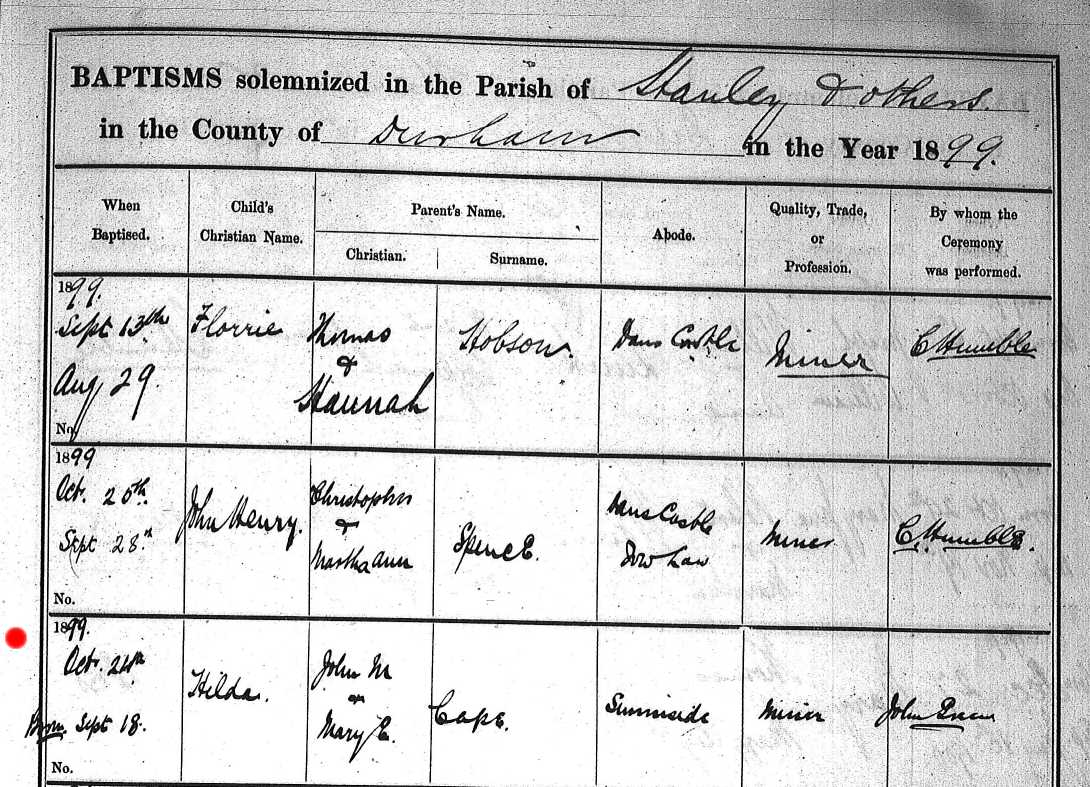 BAPTISMS solemnized in the Parish of Stanley & others
in the County of Durham in the Year 1899.
When Baptised.
Child's Christian Name.
Parent's Name.
Christian.
Surname.
Abode.
Quality, Trade, or Profession.
By whom the Ceremony was performed.
1899.
Sept 13th
Aug 29
No.
Florrie
Thomas
&
Hannah
Hobson.
Dans Castle
Miner
C Humble
1899
Oct. 25th.
Sept 28.th
No.
John Henry.
Christopher
&
Martha Ann
Spence.
Dans Castle
Tow Law
Miner
C. Humble.
1899.
Oct. 24th
Born Sept 18.
No.
Hilda.
John M
&
Mary E.
Cape.
Sunniside
Miner
John